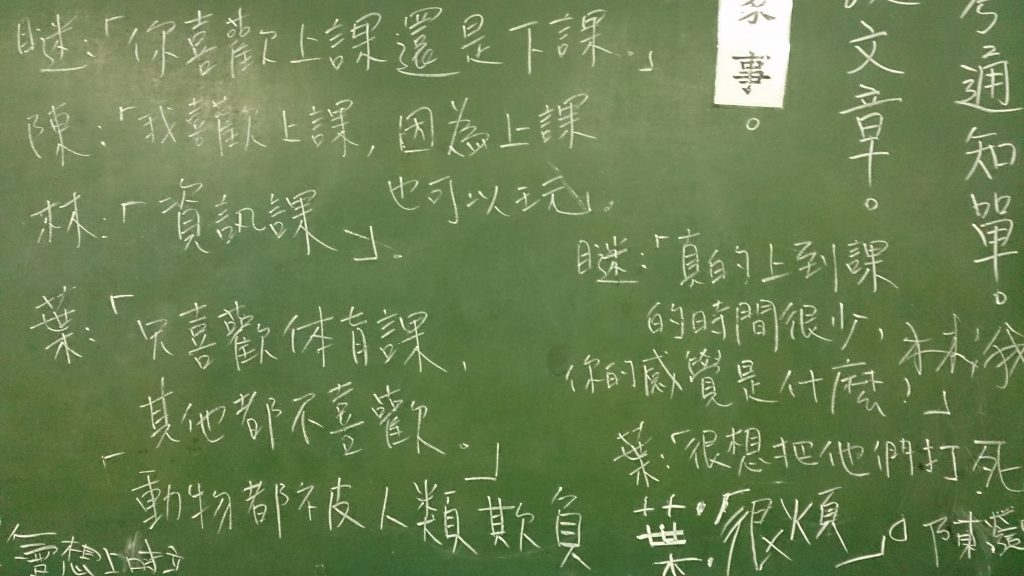 瞇:「你喜歡上課還是下課。」
陳:「我喜歡上課,因為上課
也可以玩」。
林:「資訊課」。
葉:「只喜歡体育課,
其他都不喜歡。」
「動物都被人類欺負
會想上
事。
文章。
通知單。
瞇:「真的上到課
的時間很少,
你的感覺是什麼?」
林:「我
葉:「很想把他們打死
葉:「很煩」。
陳